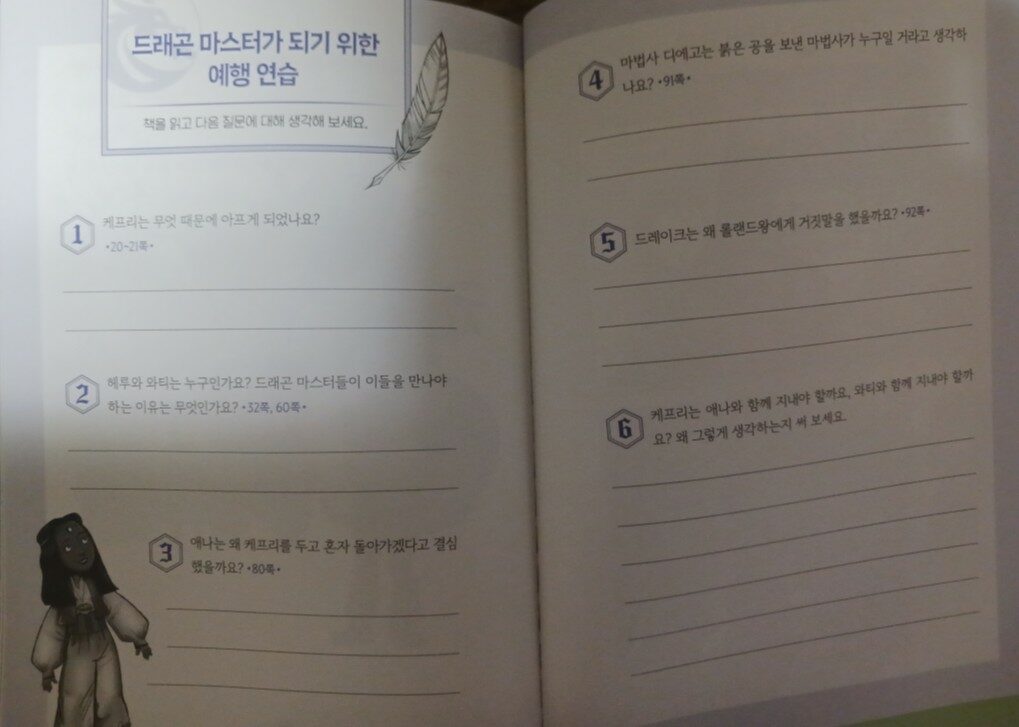 드래곤 마스터가 되기 위한
예행 연습
책을 읽고 다음 질문에 대해 생각해 보세요.
1 케프리는 무엇 때문에 아프게 되었나요?
•20~21쪽•
2 헤루와 와티는 누구인가요? 드래곤 마스터들이 이들을 만나야
하는 이유는 무엇인가요? •32쪽, 60쪽•
3 애나는 왜 케프리를 두고 혼자 돌아가겠다고 결심
했을까요? •80쪽•
4 마법사 디에고는 붉은 공을 보낸 마법사가 누구일 거라고 생각하
나요? •91쪽•
5 드레이크는 왜 롤랜드왕에게 거짓말을 했을까요? •92쪽•
6 케프리는 애나와 함께 지내야 할까요, 와티와 함께 지내야 할까
요? 왜 그렇게 생각하는지 써 보세요.